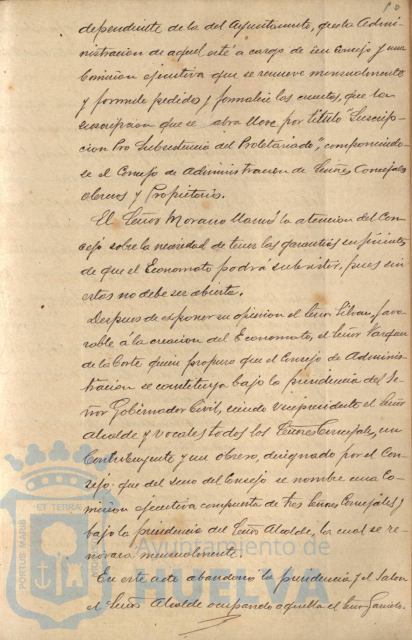 dependiente de la del Ayuntamiento, que la Admi-
nistracion de aquel esté a cargo de un Consejo y una
Comision ejecutiva que se renueve mensualmente
y formule pedidos y formalice las cuentas, que la
suscripcion que se abra lleve por titulo "Suscrip-
cion Pro Subsistencia del Proletariado", componiendo-
se el Consejo de Administracion de Señores Concejales
obreros y Propietarios.
El Señor Morano llamó la atencion del Con-
cejo sobre la necesidad de tener las garantias suficientes
de que el Economato podrá subsistir, pues sin
ertas no debe ser abierta.
Despues de exponer su opinion el Señor favo-
rable á la creacion del Economato, el Señor Vargas
de la Corte quien propuso que el Consejo de Adminis-
tracion se constituya bajo la presidencia del Se-
ñor Gobernador Civil, siendo Vicepresidente el Señor
Alcalde y vocales todos los Señores Concejales, un
Contribuyente y un obrero, designado por el Con-
sejo; que del seno del Consejo se nombre una Co-
mision ejecutiva compuesta de tres Señores Concejales y
bajo la presidencia del Señor Alcalde, los cual se re-
novara mensualmente.
En este acto abandonó la presidencia y el Salon
el Señor Alcalde ocupando aquella el Señor
PORTUS MARIS
ET TERRAE
Ayuntamiento de
HUELVA